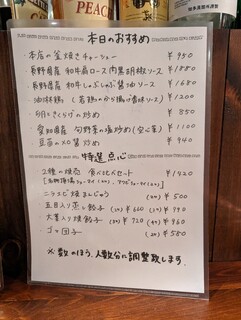 PEACH
本日のおすすめ
本店の釜焼きチャーシュー ¥950
長野県産 和牛肩ロース肉黒胡椒ソース ¥1880
長野県産 和牛しゃぶしゃぶ醤油ソース ¥1680
油淋鶏 (若鶏のから揚げ香味ソース) ¥1200
卵ときくらげの炒め ¥850
愛知県産 旬野菜の塩炒め (空心菜) ¥1100
豆苗のXO醤炒め ¥940
特選点心
2種の焼売 食べ比べセット ¥1420
ニラエビ焼まんじゅう (2コ) ¥500
五目入り蒸し餃子 (2コ) ¥660 (3コ) ¥990
大葉入り焼餃子 (3コ) ¥720 (4コ) ¥960
ゴマ団子 (2コ) ¥580
※数のほう、人数分に調整致します。